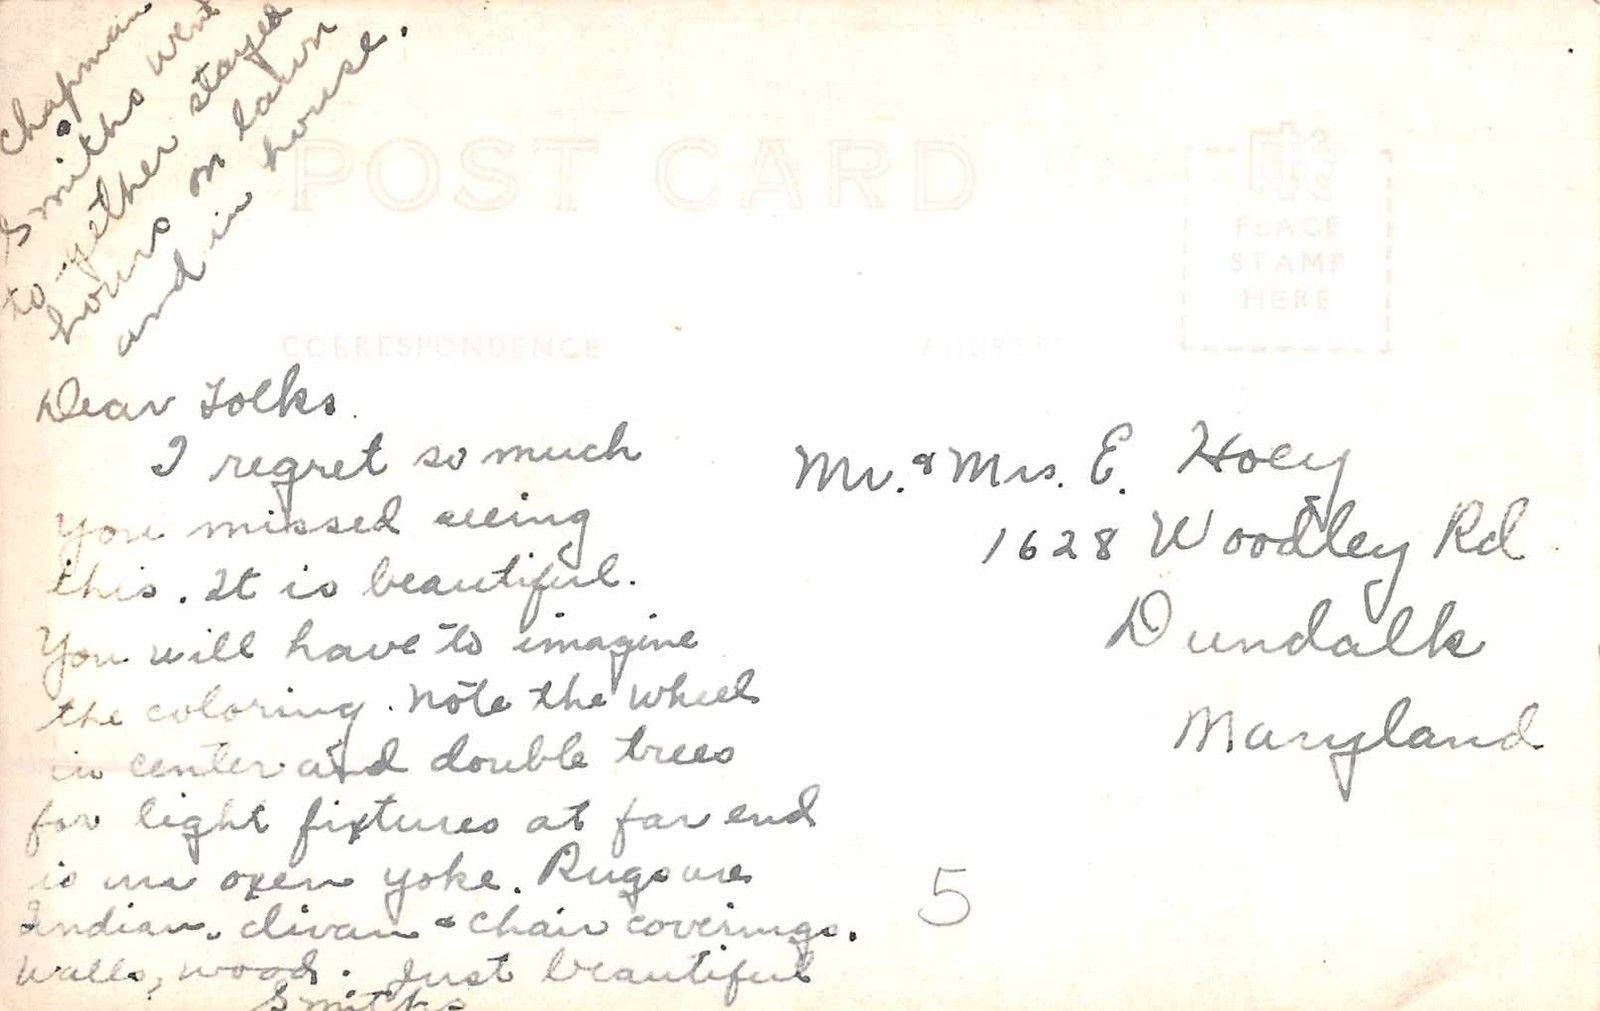 Chapman
Smiths went
together stayed
hours on lawn
and in house.
POST CARD
PLACE
STAMP
HERE
CORRESPONDENCE
ADDRESS
Dear Folks.
I regret so much
you missed seeing
this. It is beautiful.
You will have to imagine
the coloring. Note the wheel
in center and double trees
for light fixtures at far end
is an oxen yoke. Rugs are
Indian. divan & chair coverings.
Walls, wood. Just beautiful
Smiths
Mr. & Mrs. E. Hoey
1628 Woodley Rd
Dundalk
Maryland
5